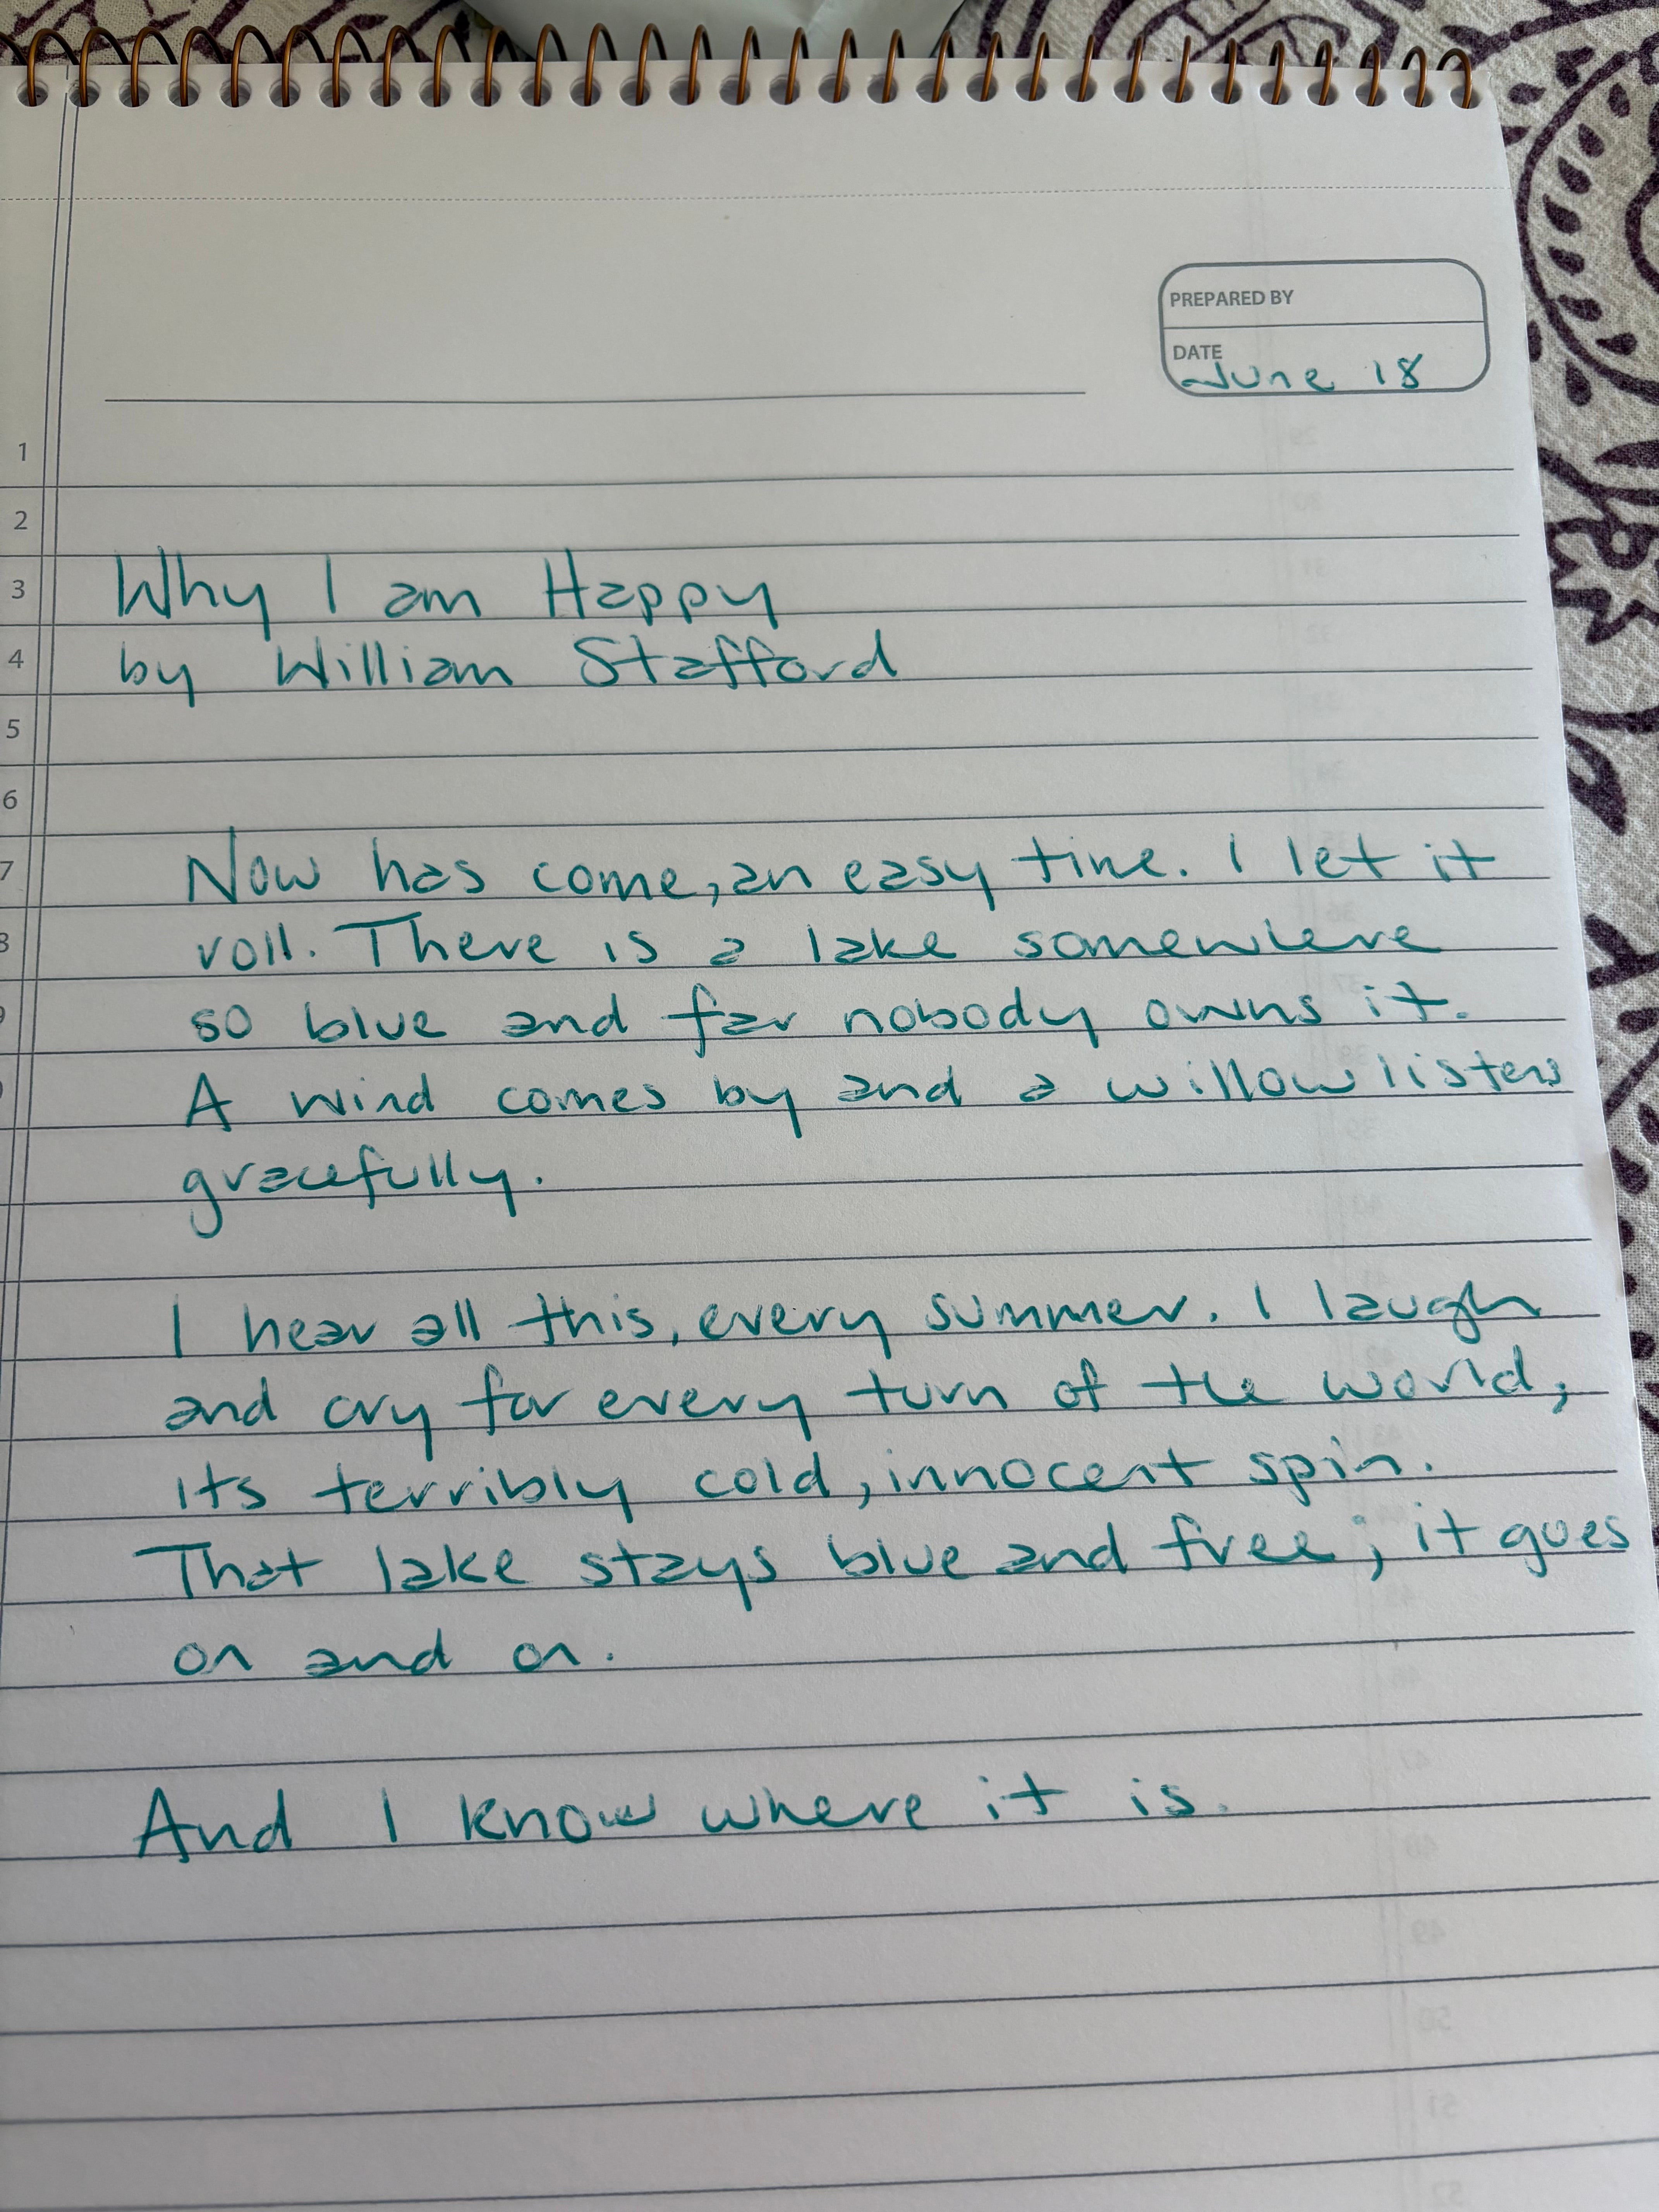 PREPARED BY
DATE
June 18
1
2
3 Why I am Happy
4 by William Stafford
5
6
7 Now has come, an easy time. I let it
8 roll. There is a lake somewhere
so blue and far nobody owns it.
A wind comes by and a willow listens
gracefully.
I hear all this, every summer. I laugh
and cry for every turn of the world,
its terribly cold, innocent spin.
That lake stays blue and free; it goes
on and on.
And I know where it is.